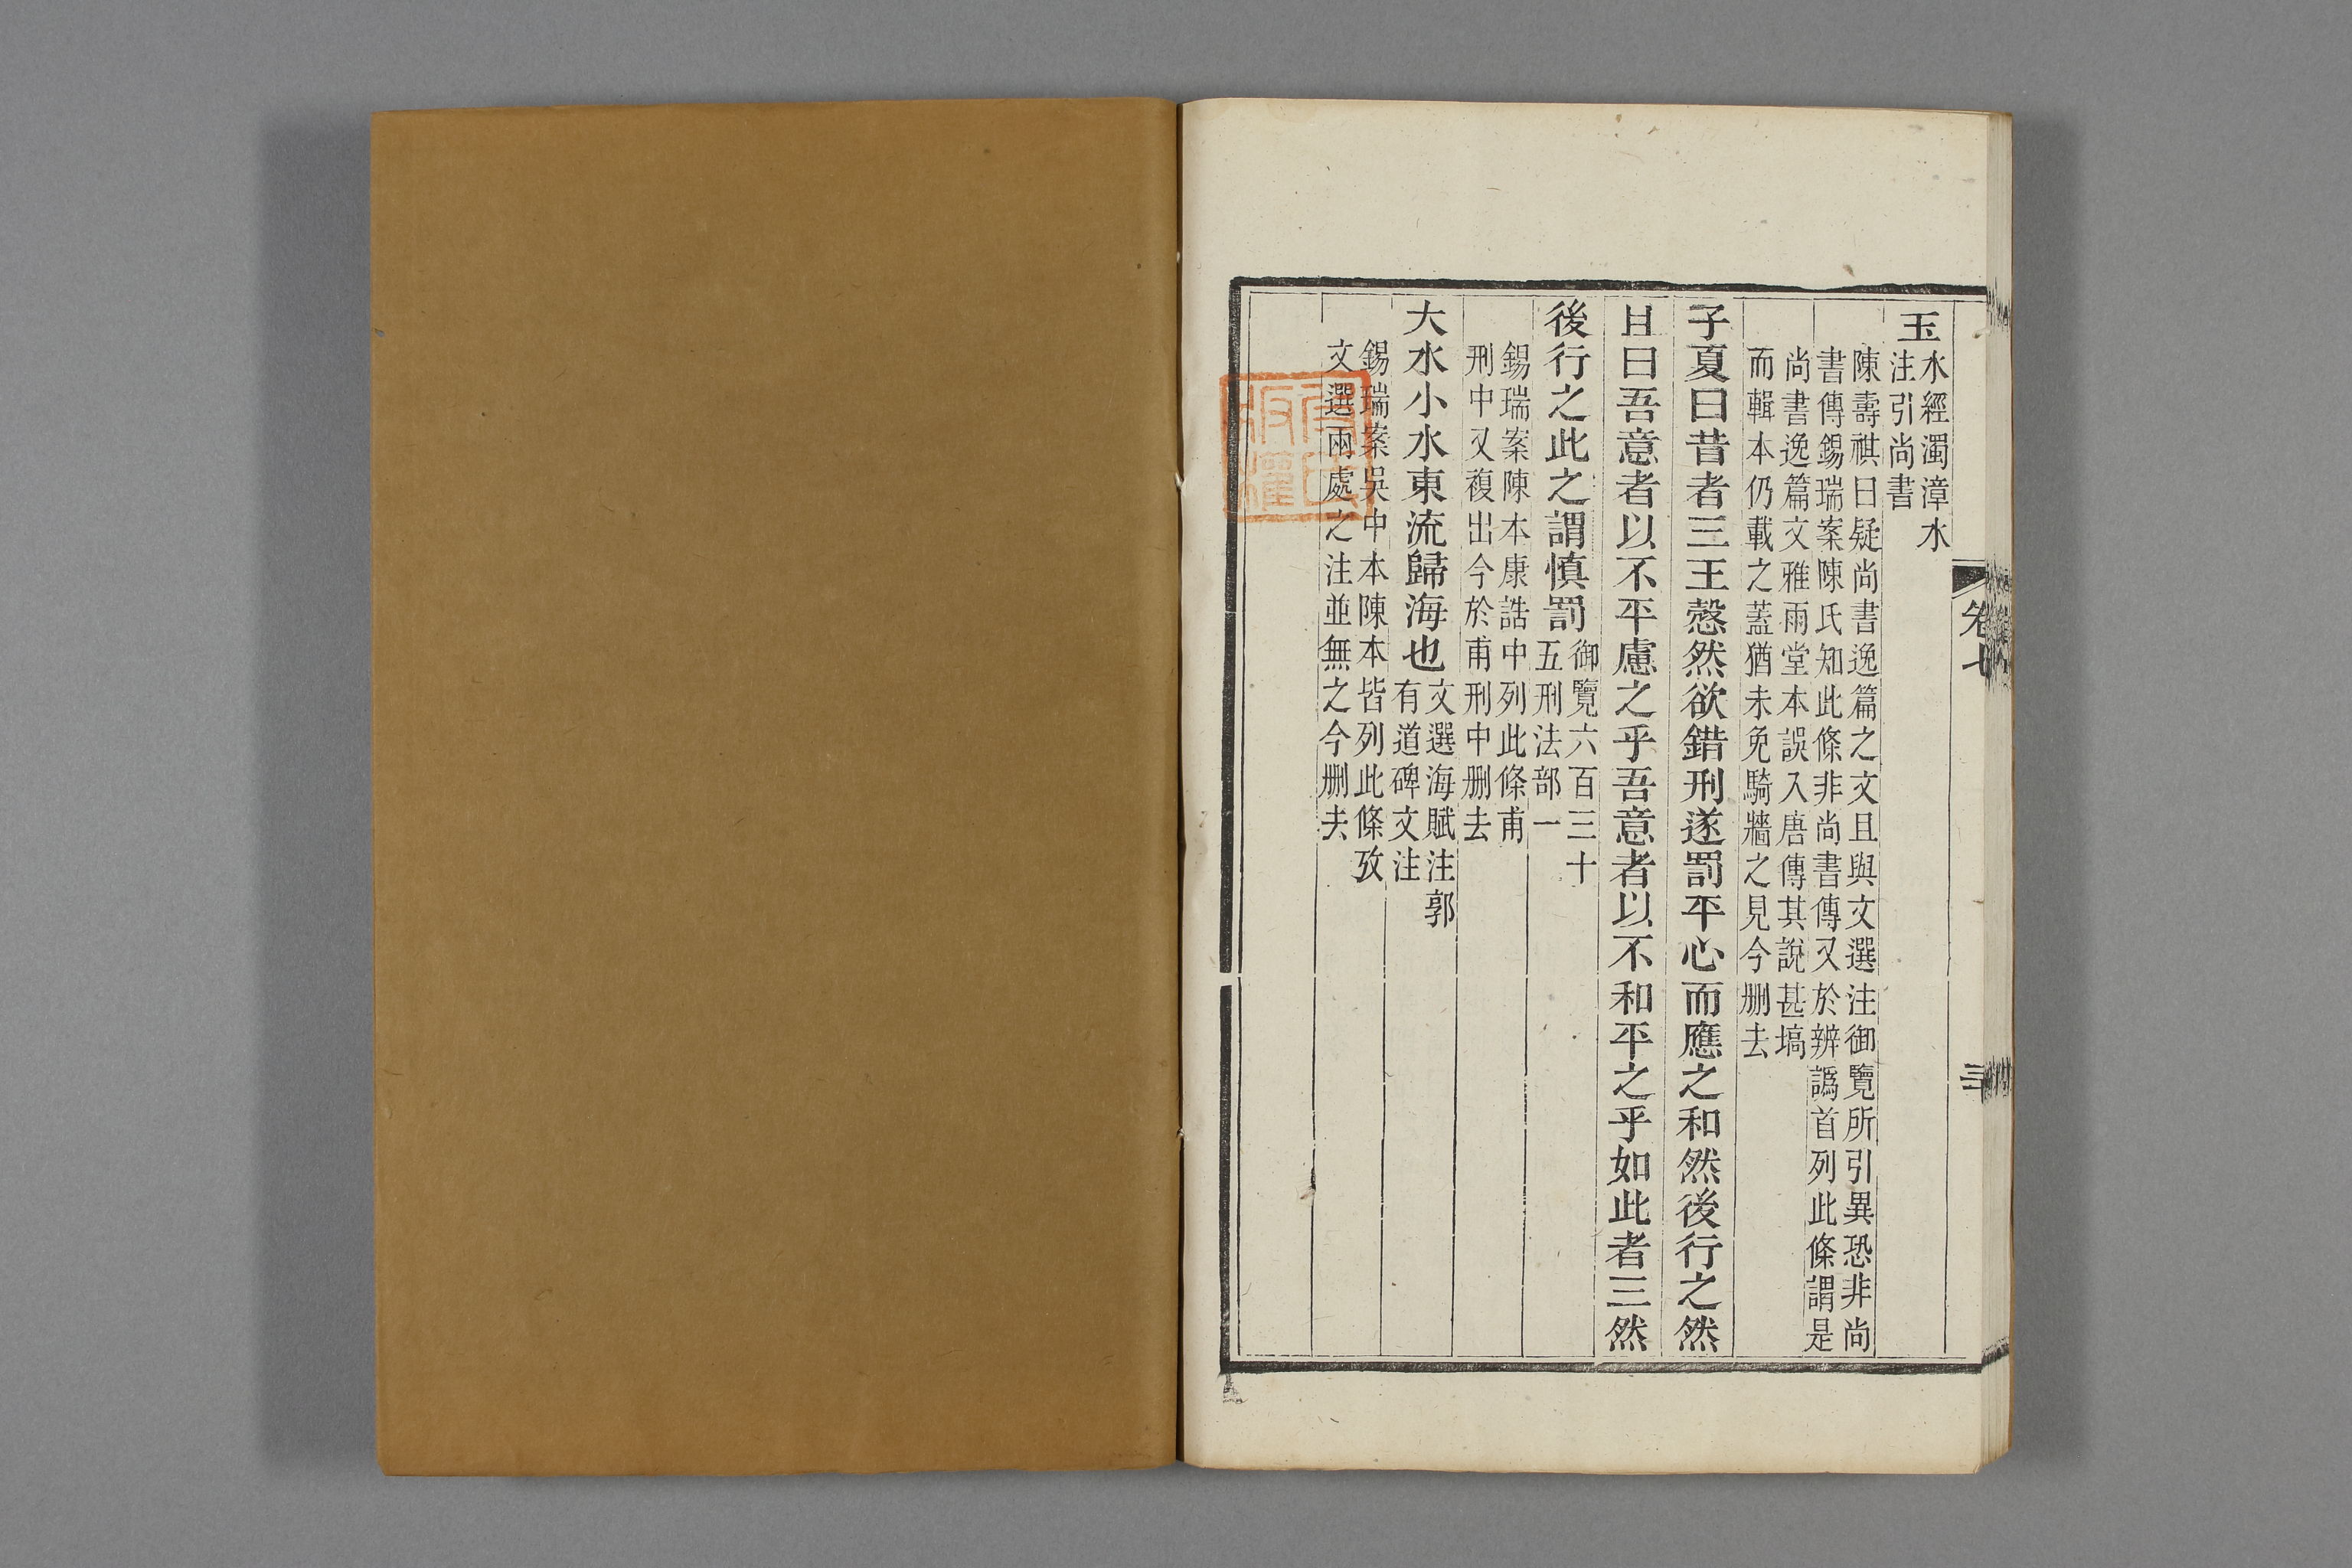 玉
水經濁漳水
注引尚書
陳壽祺曰疑尚書逸篇之文且與文選注御覽所引異恐非尚
書傳錫瑞案陳氏知此條非尚書傳又於辨譌首列此條謂是
尚書逸篇文雅雨堂本誤入唐傳其說甚塙
而輯本仍載之蓋猶未免騎牆之見今刪去
子夏曰昔者三王愨然欲錯刑遂罰平心而應之和然後行之然
且曰吾意者以不平慮之乎吾意者以不和平之乎如此者三然
後行之此之謂慎罰
御覽六百三十
五刑法部一
錫瑞案陳本康誥中列此條甫
刑中又複出今於甫刑中刪去
大水小水東流歸海也
文選海賦注郭
有道碑文注
錫瑞案吳中本陳本皆列此條攷
文選兩處之注並無之今刪去
卷七